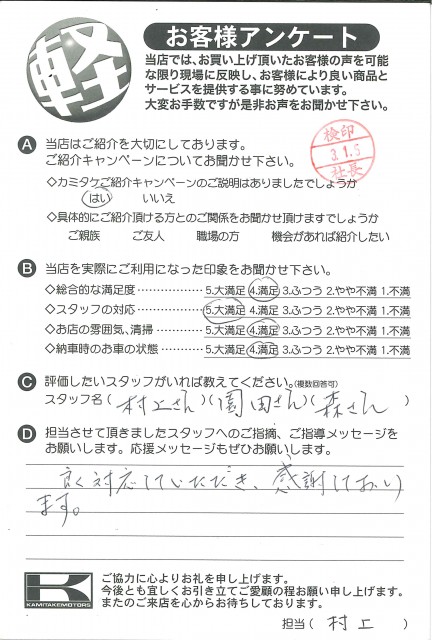 軽
お客様アンケート
当店では、お買い上げ頂いたお客様の声を可能
な限り現場に反映し、お客様により良い商品と
サービスを提供する事に努めています。
大変お手数ですが是非お声をお聞かせ下さい。
A 当店はご紹介を大切にしております。
ご紹介キャンペーンについてお聞かせ下さい。
検印
3.1.5
社長
◇カミタケご紹介キャンペーンのご説明はありましたでしょうか
はい いいえ
◇具体的にご紹介頂ける方とのご関係をお聞かせ頂けますでしょうか
ご親族 ご友人 職場の方 機会があれば紹介したい
B 当店を実際にご利用になった印象をお聞かせ下さい。
◇総合的な満足度………………… 5.大満足 4.満足 3.ふつう 2.やや不満 1.不満
◇スタッフの対応………………… 5.大満足 4.満足 3.ふつう 2.やや不満 1.不満
◇お店の雰囲気、清掃…………… 5.大満足 4.満足 3.ふつう 2.やや不満 1.不満
◇納車時のお車の状態…………… 5.大満足 4.満足 3.ふつう 2.やや不満 1.不満
C 評価したいスタッフがいれば教えてください。(複数回答可)
スタッフ名(村上さん)(園田さん)(森さん)
D 担当させて頂きましたスタッフへのご指摘、ご指導メッセージを
お願いします。応援メッセージもぜひお願いします。
良く対応していただき、感謝しており
ます。
K
KAMITAKEMOTORS
ご協力に心よりお礼を申し上げます。
今後とも宜しくお引き立てご愛顧の程お願い申し上げます。
またのご来店を心からお待ちしております。
担当(村上)